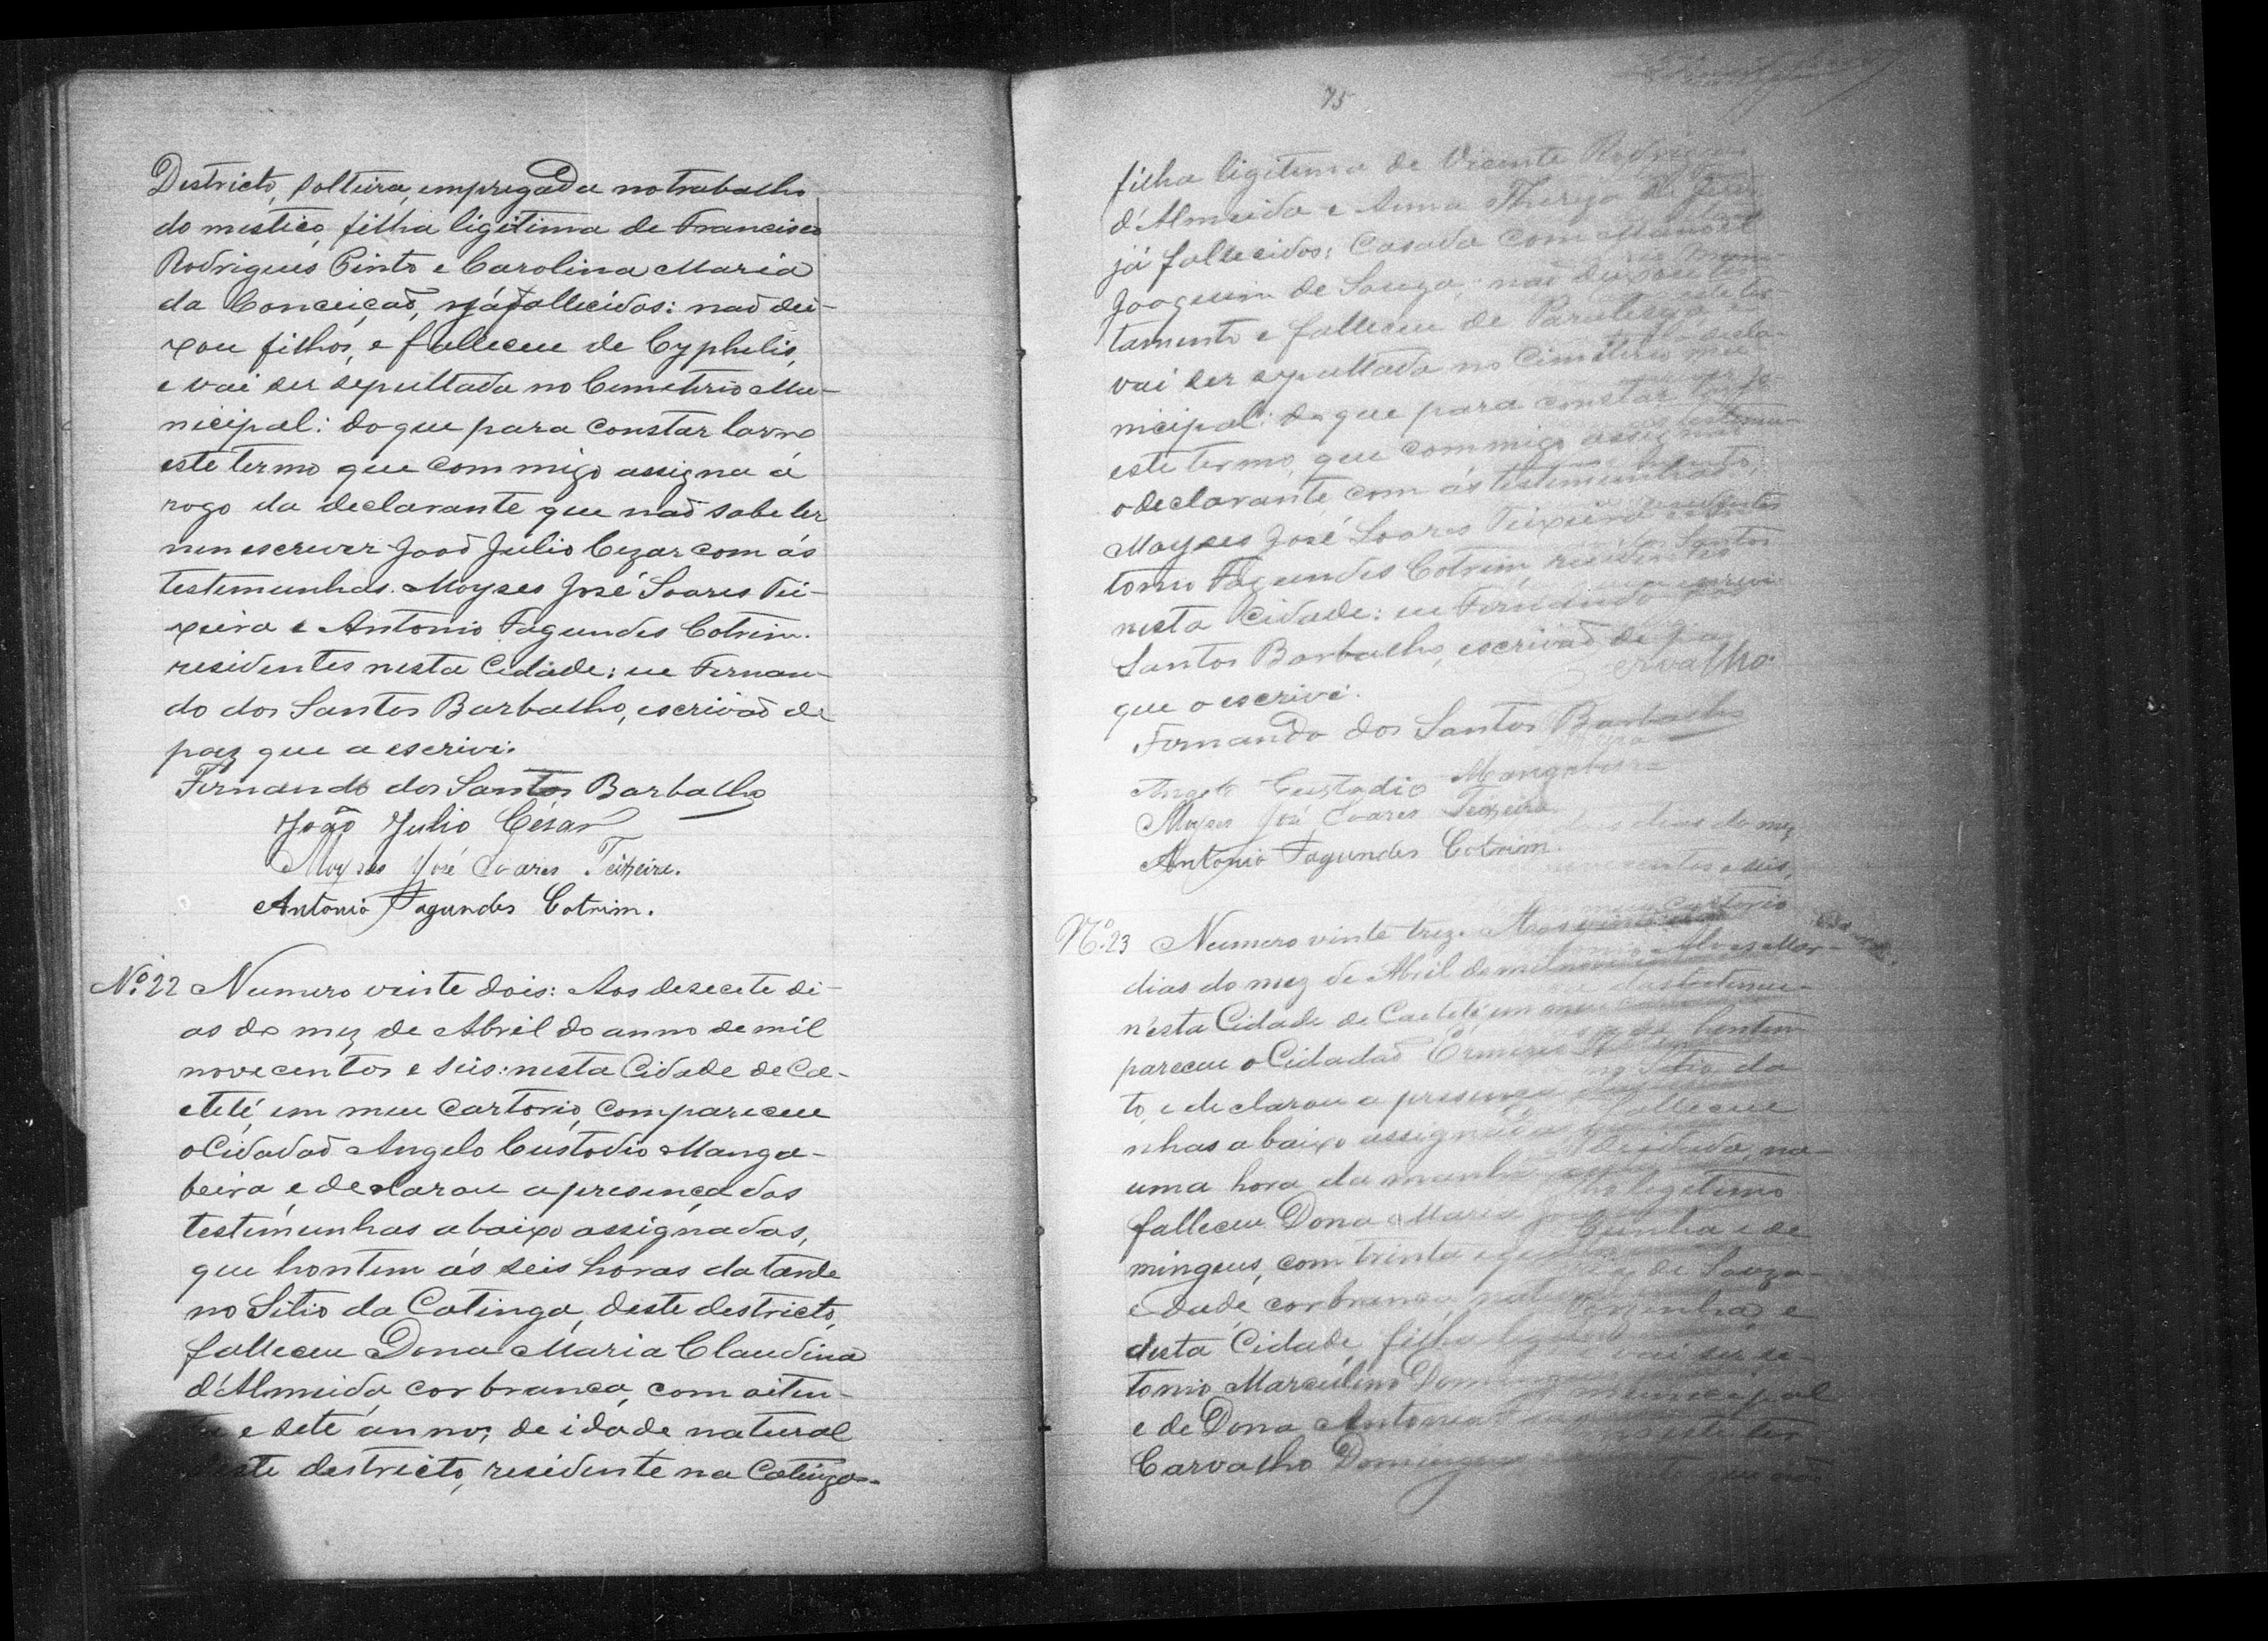 Destricto, solteira, empregada no trabalho
do mestico, filha ligitima de Francisco
Rodrigues Pinto e Carolina Maria
da Conceiçaõ, já fallecidos: naõ dei-
xou filhos, e falleceu de Cyphelis,
e vai ser sepultada no Cemeterio Mu-
nicipal: do que para constar lavro
este termo que commigo assigna á
rogo da declarante que naõ sabe ler
nem escrever Joaõ Júlio Cezar com ás
testemunhas. Moyses José Soares Tei-
xeira e Antonio Fagundes Cotrim.
residentes nesta Cidade; eu Fernan-
do dos Santos Barbalho, escrivaõ de
paz que a escrivi.
Fernando dos Santos Barbalho
João Julio César
Moyses José Soares Teixeira.
Antonio Fagundes Cotrim.
Nº. 22 Numero vinte dois: Aos desecete di-
as do mez de Abril do anno de mil
novecentos e seis: nesta Cidade de Ca-
eteté, em meu cartorio, compareceu
o Cidadaõ Angelo Custodio Manga-
beira, e declarou a presença das
testemunhas abaixo assignadas,
que hontem ás seis horas da tarde
no Sitio da Catinga, deste destricto,
falleceu Dona Maria Claudina
d'Almeida, cor branca, com oiten-
ta e sete annos, de idade natural
deste destricto, residente na Catinga-
75
filha ligitima de Vicente Rodrigues
d'Almeida e Anna Thereza de Jesus
já fallecidos: Casada com Manoel
Joaquim de Souza: naõ deixou tes-
tamento e falleceu de Paralesya, e
vai ser sepultada no Cimeterio mu-
nicipal: do que para constar lavro
este termo, que commigo assigna
o declarante, com ás testemunhas
Moyses José Soares Teixeira e An-
tonio Fagundes Cotrim, residentes
nesta Cidade: eu Fernando dos
Santos Barbalho, escrivaõ de paz
que o escrivi.
Fernando dos Santos Barbalho
Angelo Custodio Mangabeira
Moyses José Soares Teixeira
Antonio Fagundes Cotrim.
Nº. 23 Numero vinte trez. Aos
dias do mez de Abril de mil nove
n'esta Cidade de Caeteté em meu
pareceu o Cidadaõ
to, e declarou a presença
nhas abaixo assignadas
uma hora da manhã
falleceu Dona Maria
mingues, com trinta e
edade, cor branca, natural
desta Cidade, filha legitima
tonio Marculino Domingues
e de Dona Antonia
Carvalho Domingues